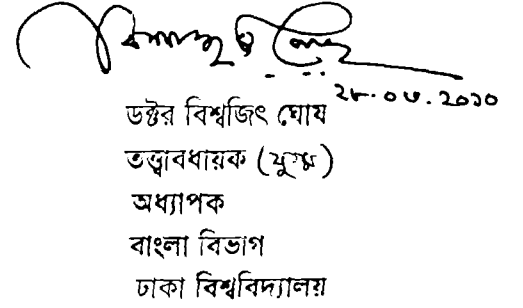 ২৮.০৬.২০১০
ডক্টর বিশ্বজিৎ ঘোষ
তত্ত্বাবধায়ক (যুগ্ম)
অধ্যাপক
বাংলা বিভাগ
ঢাকা বিশ্ববিদ্যালয়